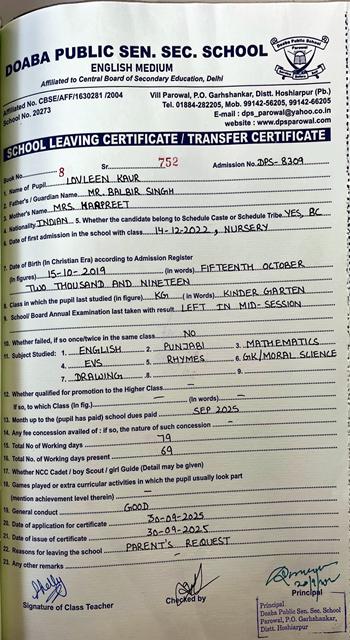 DOABA PUBLIC SEN. SEC. SCHOOL
ENGLISH MEDIUM
Affiliated to Central Board of Secondary Education, Delhi
Affiliated No. CBSE/AFF/1630281 /2004
School No. 20273
Vill Parowal, P.O. Garhshankar, Distt. Hoshiarpur (Pb.)
Tel. 01884-282205, Mob. 99142-56205, 99142-66205
E-mail : dps_parowal@yahoo.co.in
website : www.dpsparowal.com
SCHOOL LEAVING CERTIFICATE / TRANSFER CERTIFICATE
Book No. 8 Sr. 752 Admission No. DPS-8309
1. Name of Pupil LOVLEEN KAUR
2. Father's / Guardian Name MR. BALBIR SINGH
3. Mother's Name MRS. HARPREET
4. Nationality INDIAN 5. Whether the candidate belong to Schedule Caste or Schedule Tribe YES, BC
6. Date of first admission in the school with class 14-12-2022, NURSERY
7. Date of Birth (In Christian Era) according to Admission Register
(In figures) 15-10-2019 (in words) FIFTEENTH OCTOBER
TWO THOUSAND AND NINETEEN
8. Class in which the pupil last studied (in figure) KG (in Words) KINDER GARTEN
9. School/ Board Annual Examination last taken with result LEFT IN MID-SESSION
10. Whether failed, if so once/twice in the same class NO
11. Subject Studied: 1. ENGLISH 2. PUNJABI 3. MATHEMATICS
4. EVS 5. RHYMES 6. GK/MORAL SCIENCE
7. DRAWING 8. 9.
12. Whether qualified for promotion to the Higher Class –
If so, to which Class (In fig.) – (In words) –
13. Month up to the (pupil has paid) school dues paid SEP 2025
14. Any fee concession availed of : if so, the nature of such concession –
15. Total No of Working days 79
16. Total No. of Working days present 69
17. Whether NCC Cadet / boy Scout / girl Guide (Detail may be given)
18. Games played or extra curricular activities in which the pupil usually took part
(mention achievement level therein) –
19. General conduct GOOD
20. Date of application for certificate 30-09-2025
21. Date of issue of certificate 30-09-2025
22. Reasons for leaving the school PARENT'S REQUEST
23. Any other remarks –
Signature of Class Teacher
Checked by
Principal
Principal
Doaba Public Sen. Sec. School
Parowal, P.O. Garhshankar,
Distt. Hoshiarpur